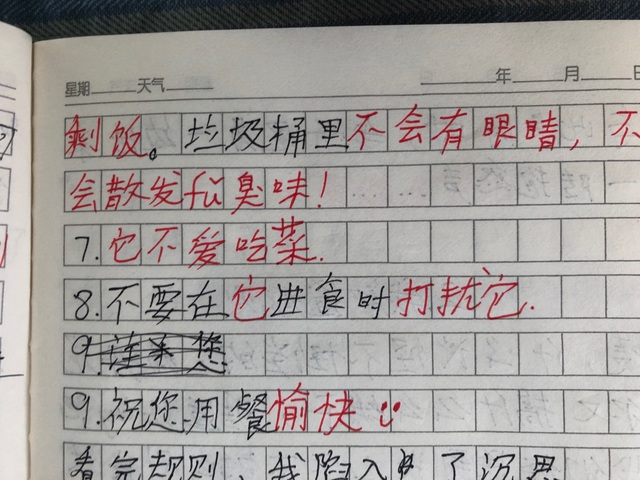 星期 天气 年 月 日
剩饭。垃圾桶里不会有眼睛，不
会散发fǔ臭味！
7.它不爱吃菜.
8.不要在它进食时打扰它.
9.
9.祝您用餐愉快
看完规则，我陷入了沉思